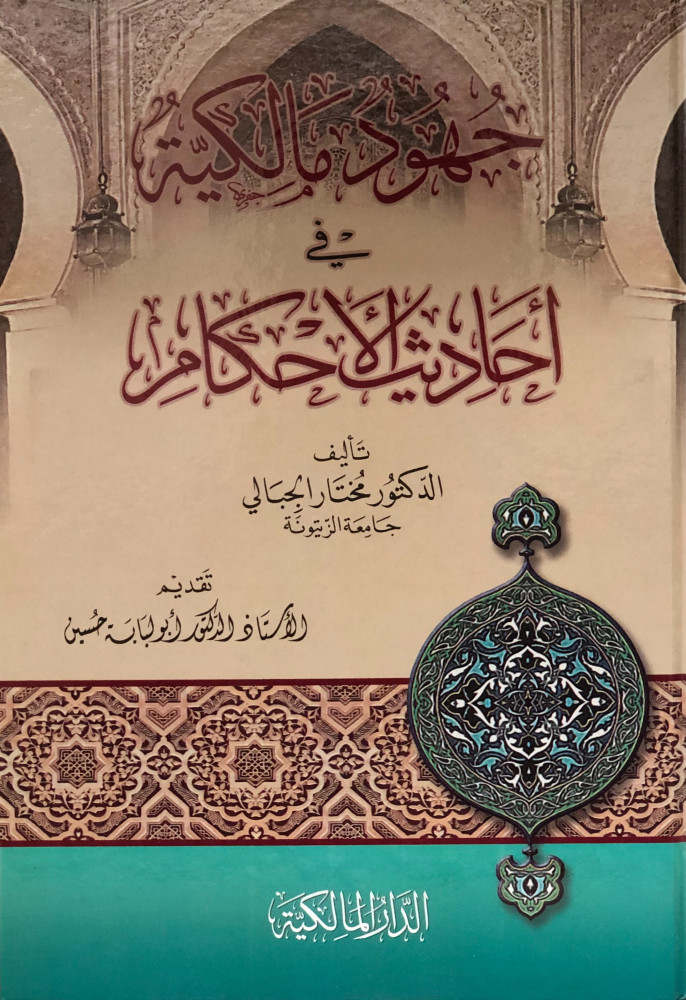 جُهُودٌ مَالِكِيَّةٌ
في
أَحَادِيثِ الأَحْكَامِ
تَأليف
الدّكتُور مُختَار الجبَالي
جَامِعَة الزيتونَة
تَقديْم
الأستَاذ الدّكتور أبو لبَابَة حُسَين
الدَّارُ المَالِكيَّة